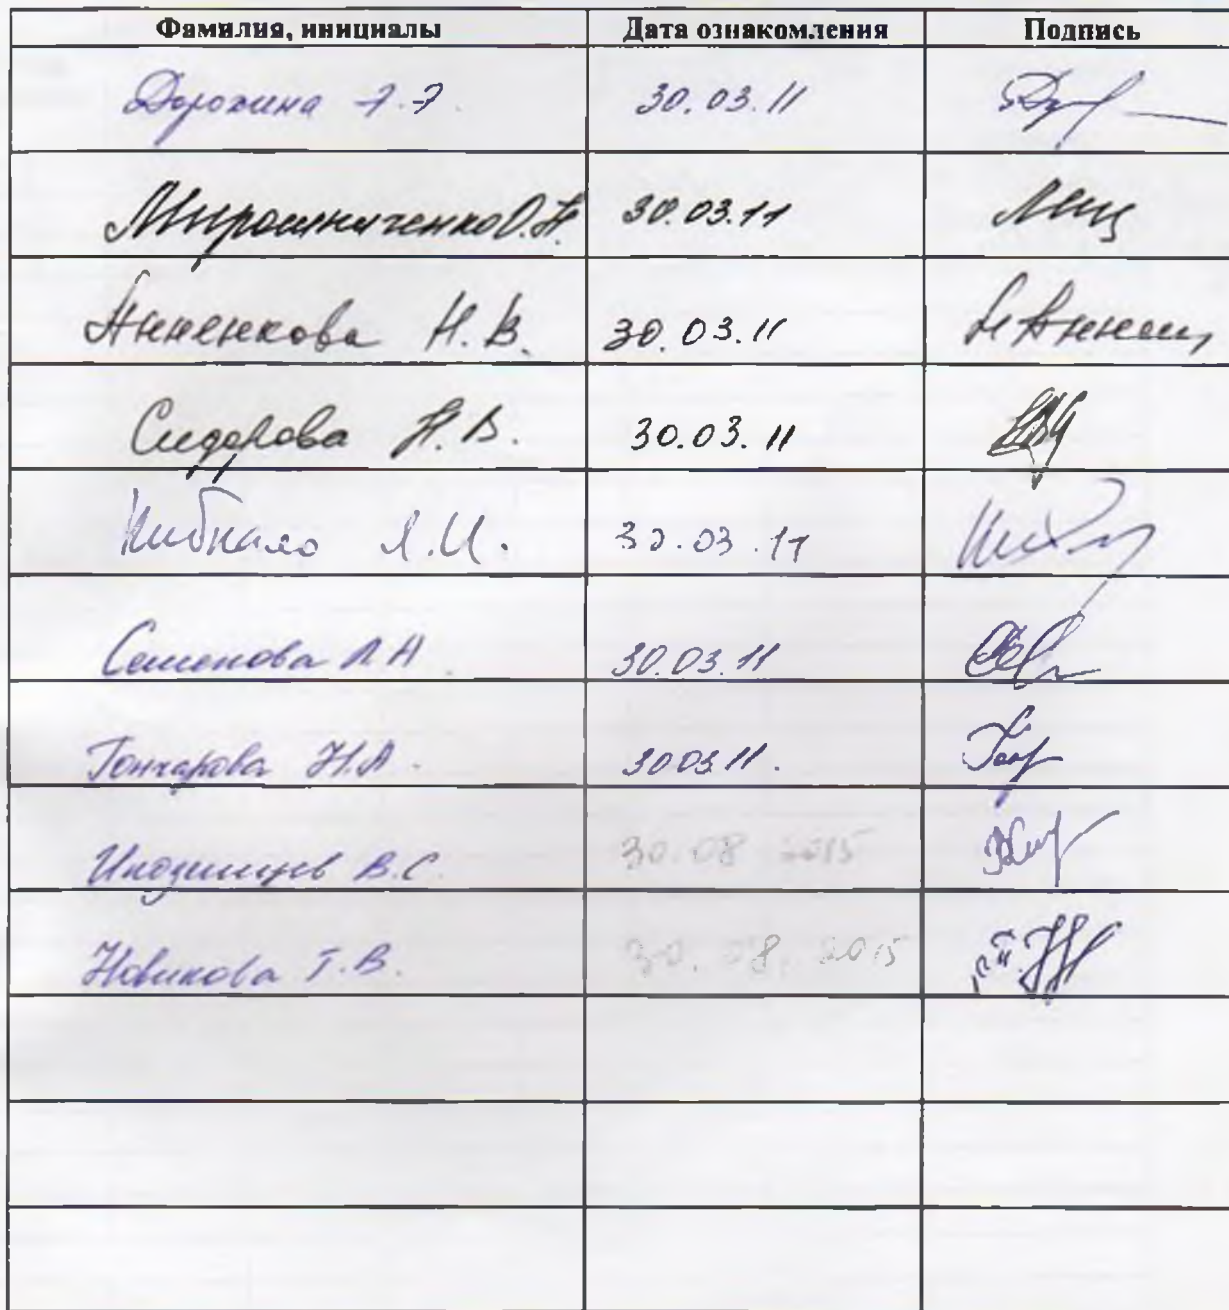 Фамилия, инициалы Дата ознакомления Подпись
Дорохина 30.03.11
Мирошниченко О.Н. 30.03.11
Анненкова Н.В. 30.03.11
Сидорова Н.В. 30.03.11
Кибкало Л.И. 30.03.11
Семенова Л Н. 30.03.11
Гончарова Н.А. 30.03.11.
В.С. 30.08 2015
Новикова Т.В. 30.08.2015